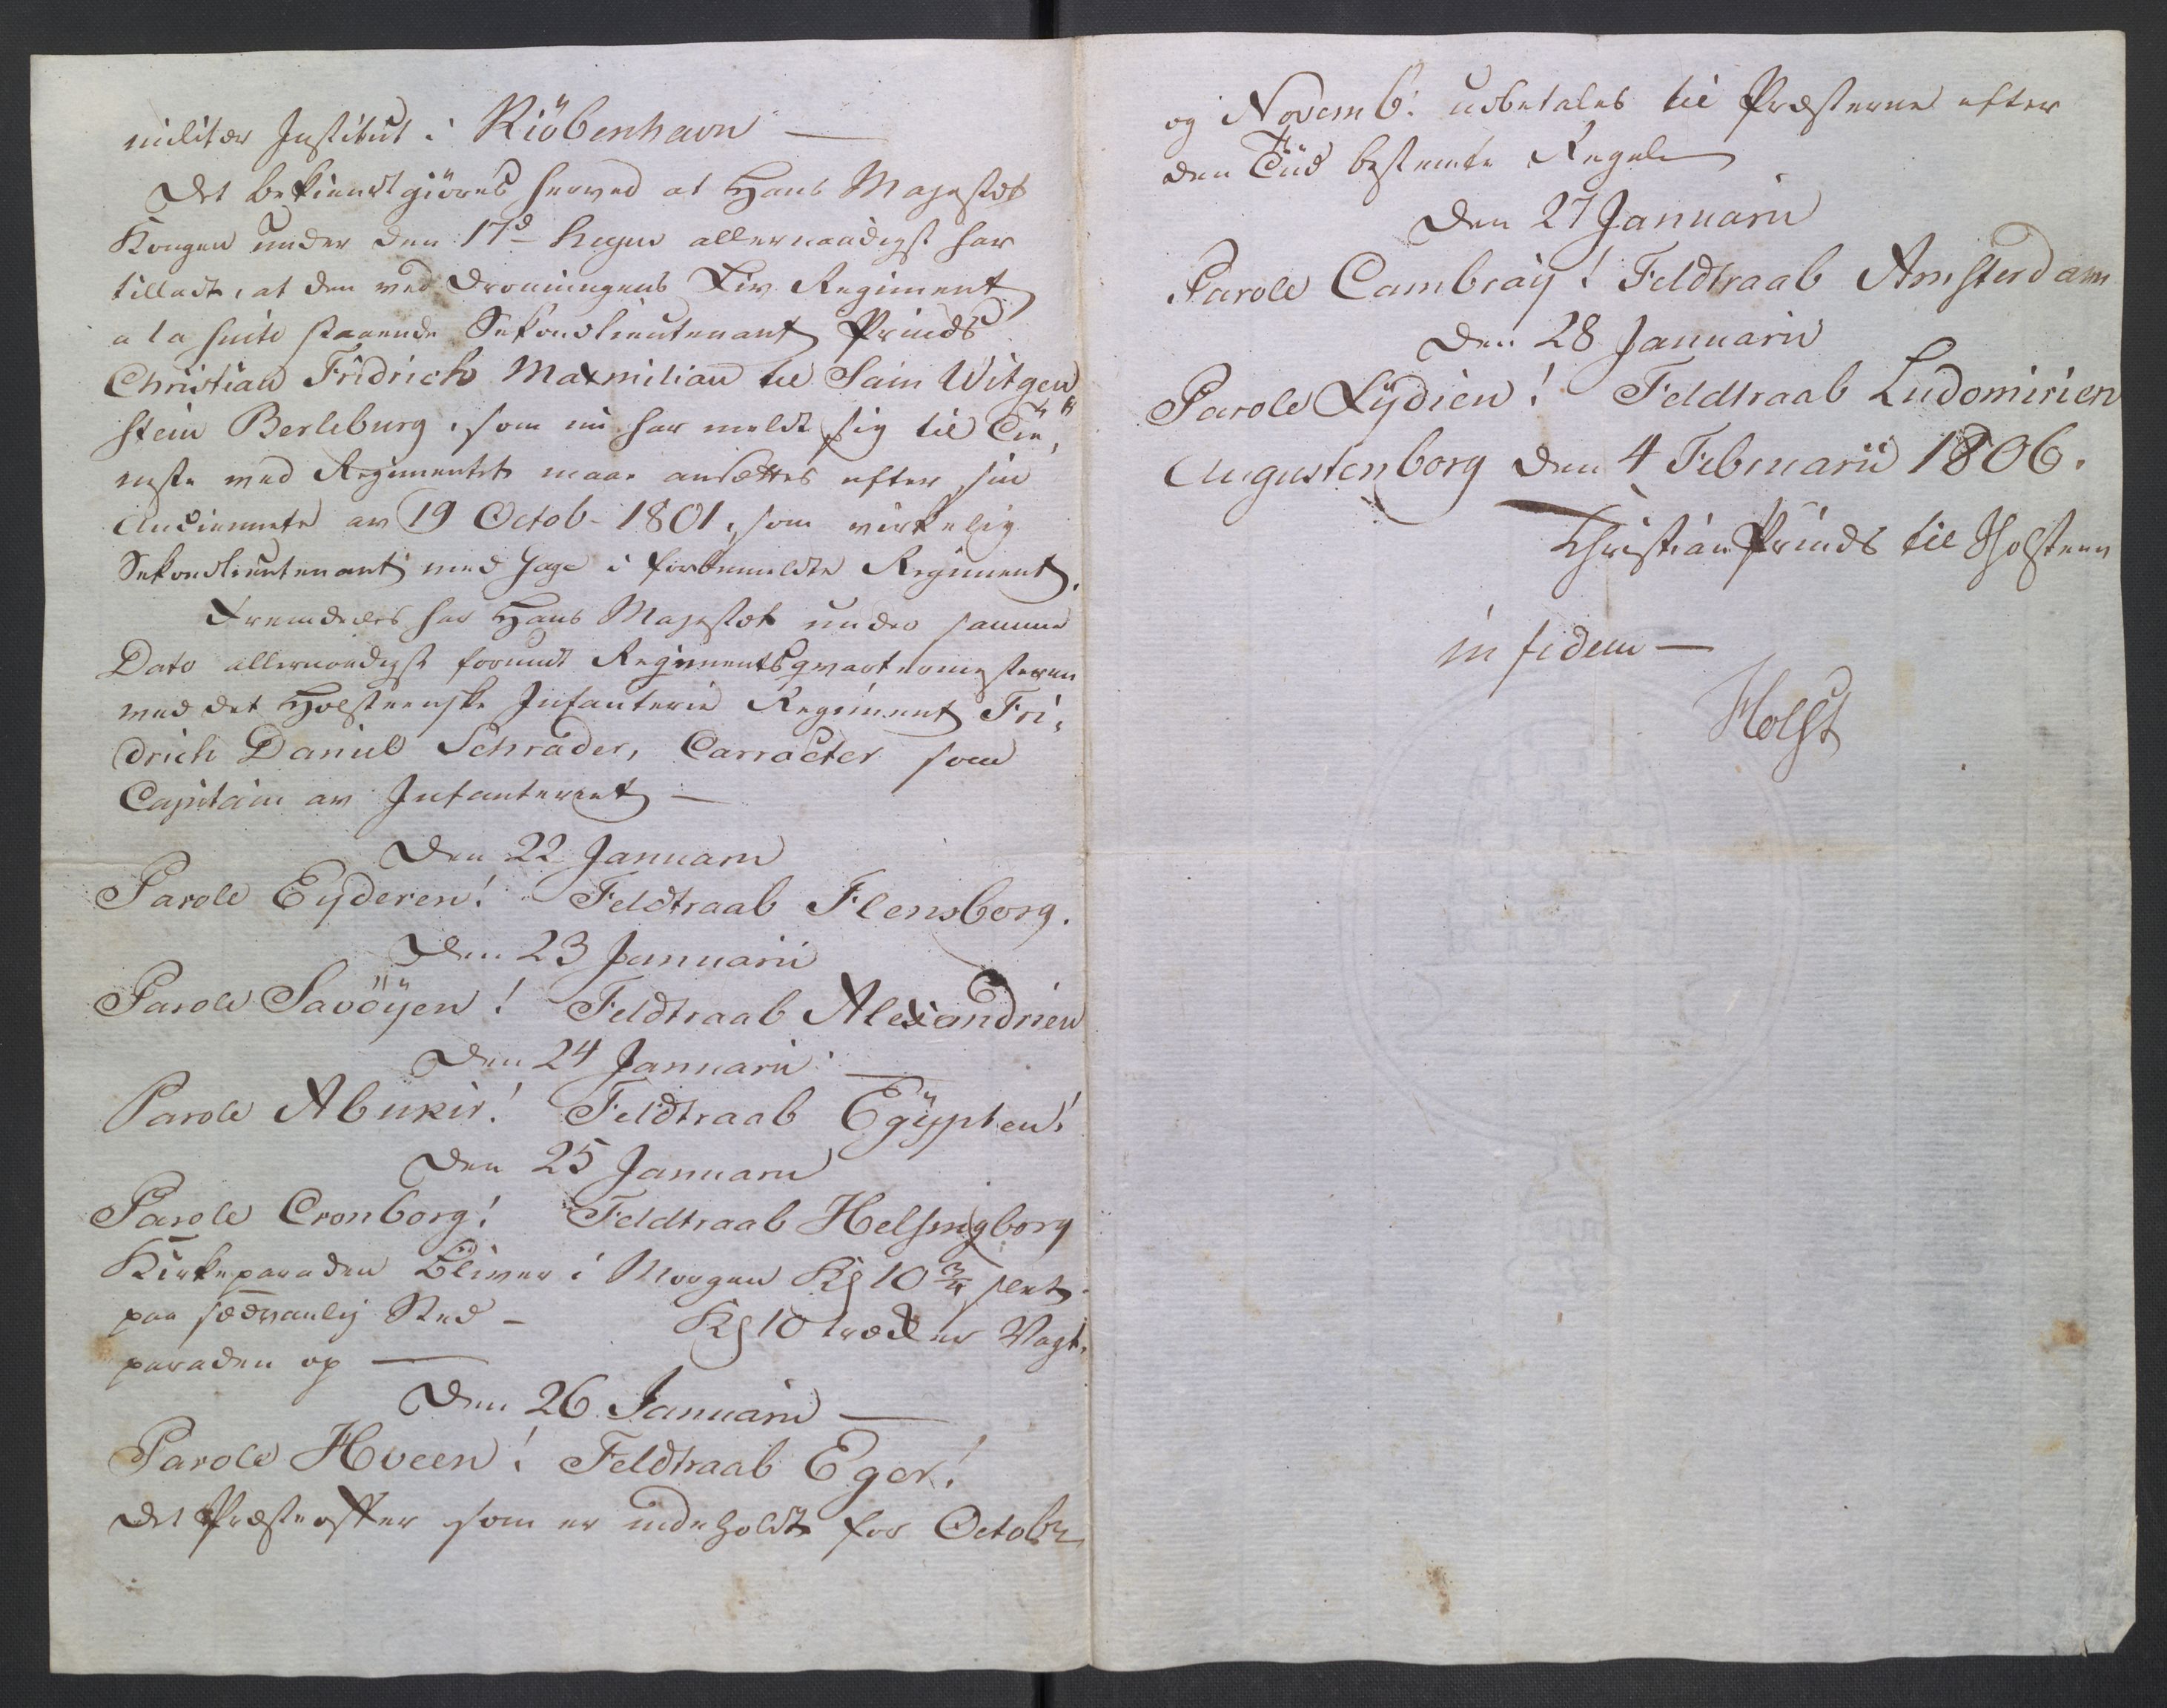 militær Institut i Kiöbenhavn —
Det bekiendtgiöres herved at Hans Majestet
Kongen under den 17d hujus allernaadigst har
tilladt, at den ved Dronningens Liv Regiment
a la suite staaende Sekondlieutenant Prinds
Christian Fridrich Maxmilian til Sain Witgen
stein Berleburg, som nu har meldt sig til Tie,
neste ved Regimentet maae ansættes efter sin
Anciennete av 19 Octob- 1801, som virkelig
Sekondlieutenant med Gage i forbemeldte Regiment.
Fremdeles har Hans Majestet under samme
Dato allernaadigst forundt Regimentsqvarteermesteren
ved det Holsteenske Infanterie Regiment Fri,
drich Daniel Schrader, Carracter som
Capitain av Infanteriet —
Den 22 Januarii
Parole Eyderen! Feldtraab Flensborg.
Den 23 Januarii
Parole Savöyen! Feldtraab Alexandrien
Den 24 Januarii
Parole Abukir! Feldtraab Egypten!
Den 25 Januarii
Parole Cronborg! Feldtraab Helsingborg
Kirkeparaden bliver i Morgen Kl 10 3/4 slet
paa sædvanlig Sted – Kl 10 træder Vagt,
paraden op —
Den 26 Januarii —
Parole Hveen! Feldtraab Eger!
Det Præsteoffer som er indeholdt for Octobr
og Novemb: udbetales til Præsterne efter
den Tiid bestemte Regel
Den 27 Januarii
Parole Cambray! Feldtraab Amsterdam
Den 28 Januarii
Parole Lydien! Feldtraab Ludomirien
Augustenborg den 4 Februarii 1806.
Christian Prinds til Holsteen
in fidem —
Holst